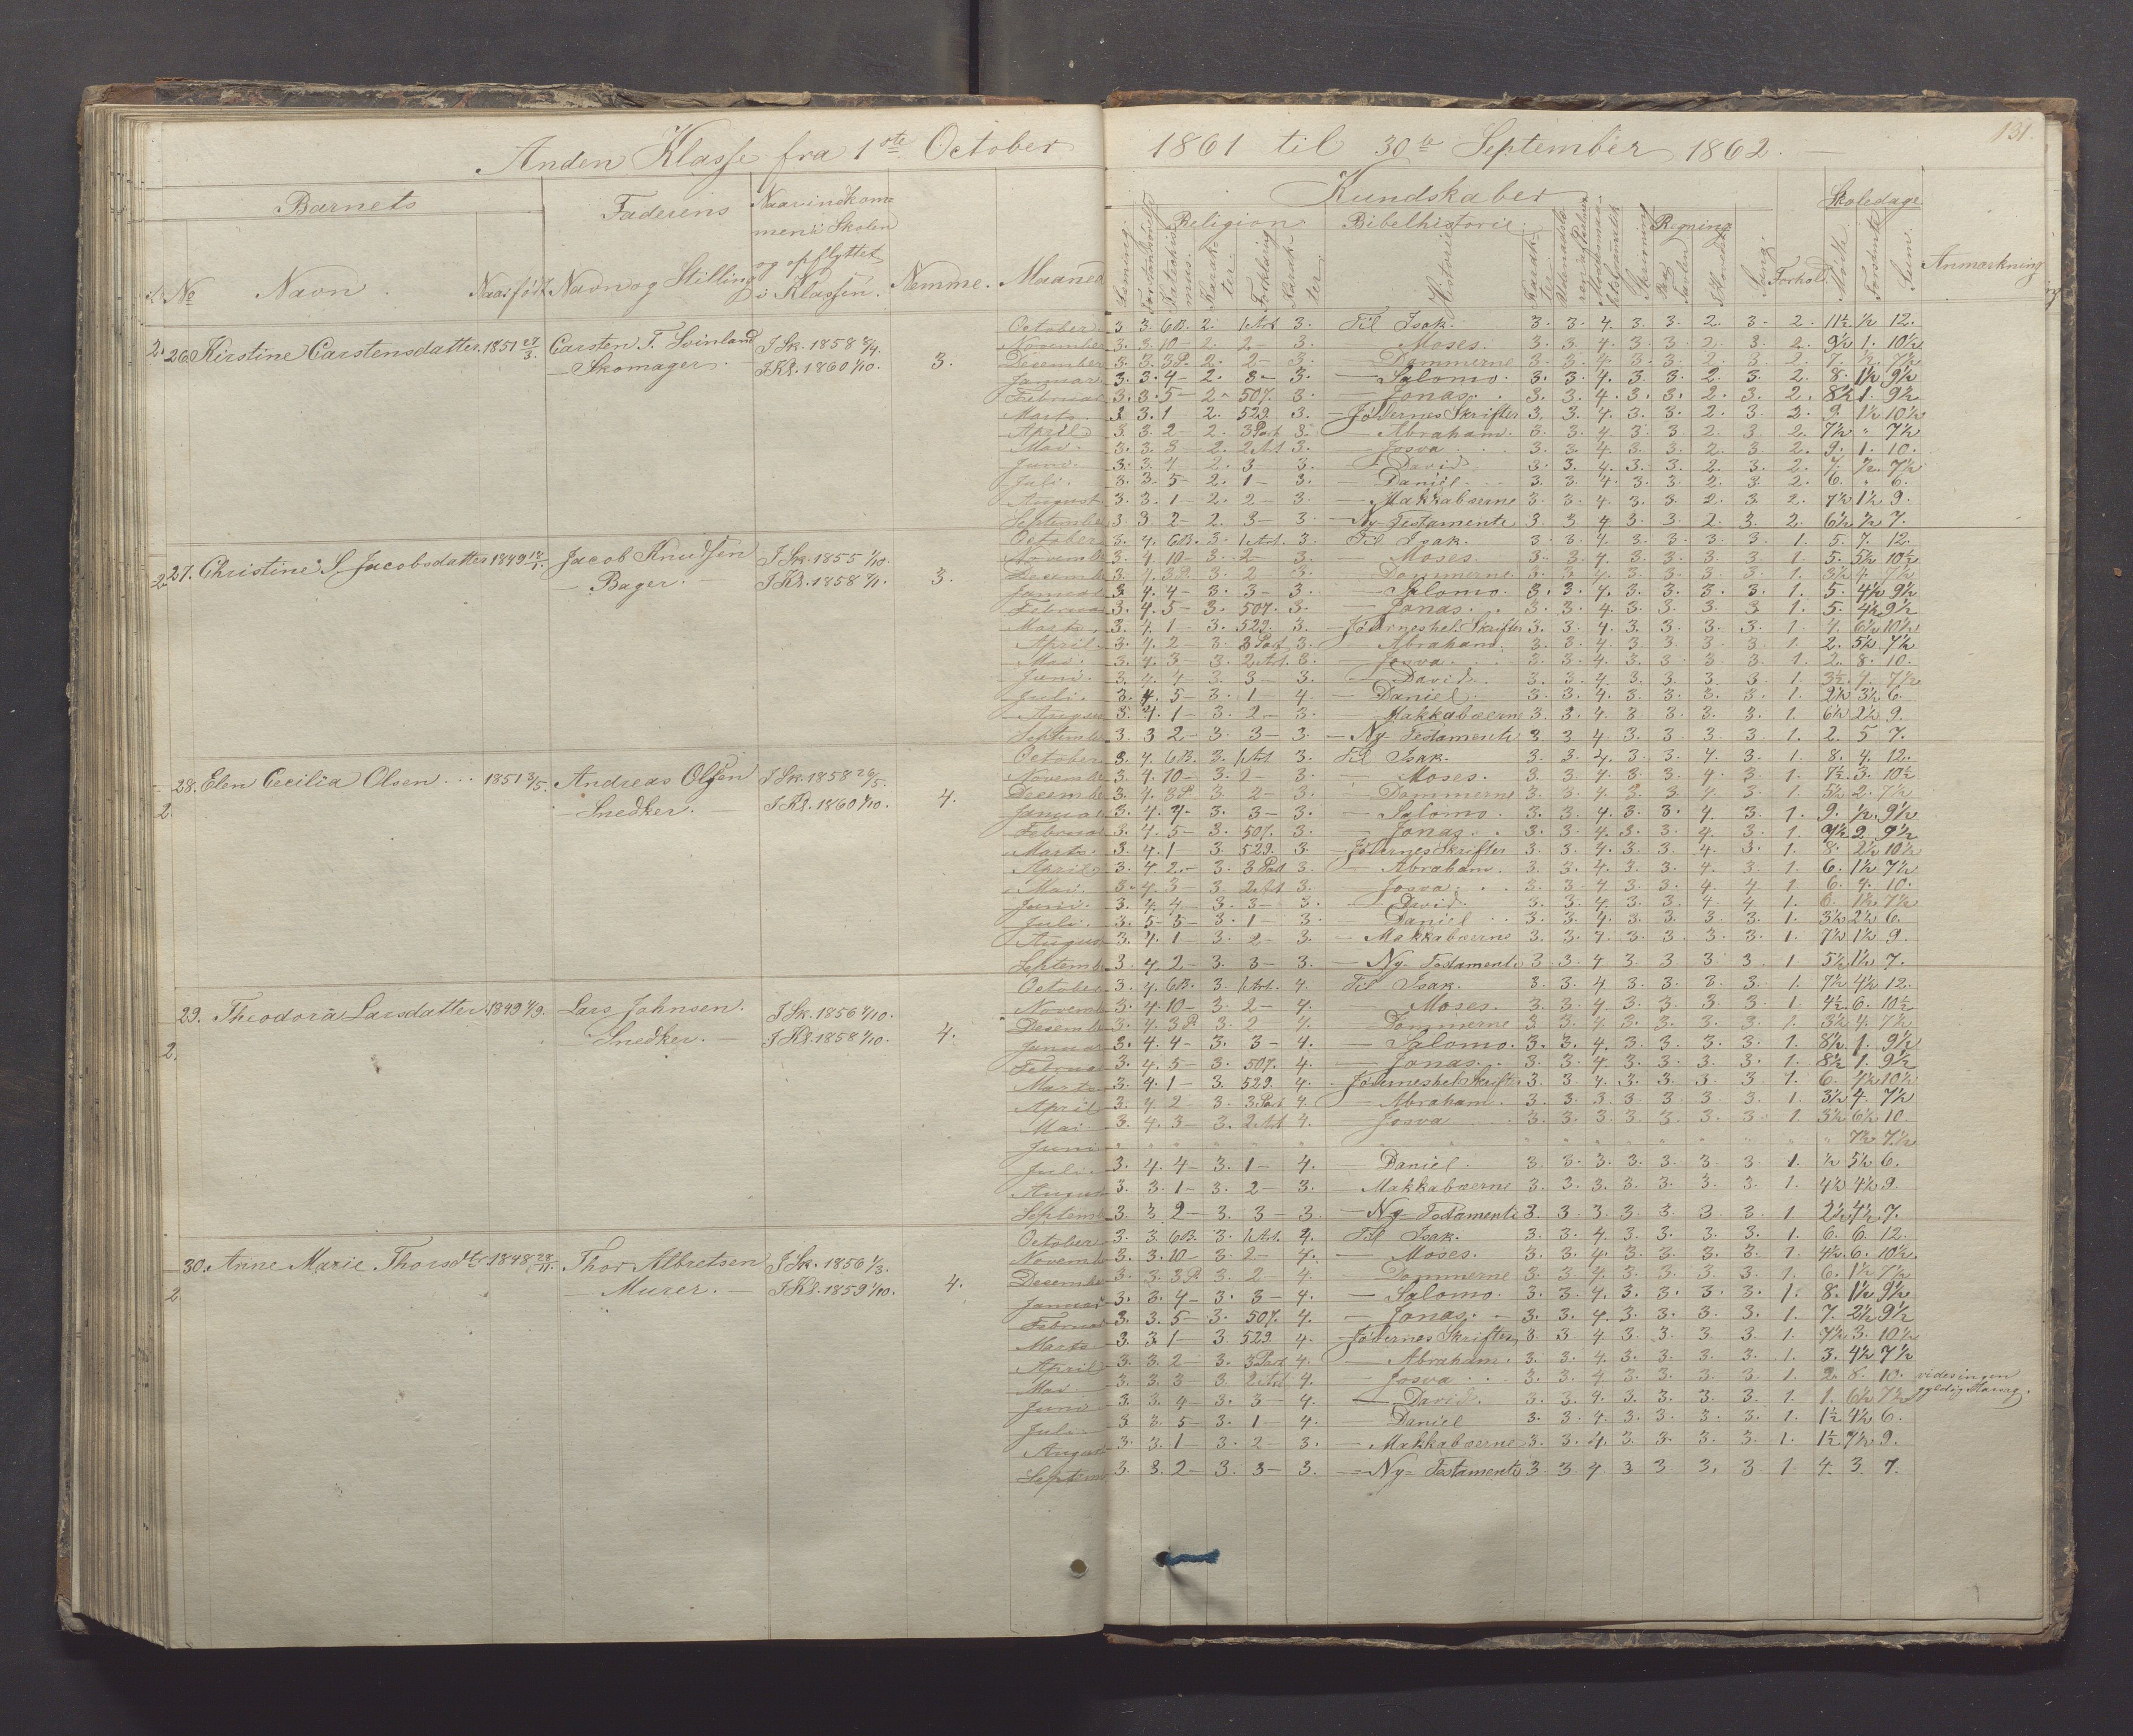 Anden Klasse fra 1ste October 1861 til 30te September 1862. 131.
Barnets Faderens Naar indkommen i Skolen og opflyttet i Klassen. Nemme. Maaned
№ Navn Naar født Navn og Stilling
Kundskaber Skoledage
Religion Bibelhistorie Regning
Læsning Forklaring Historie Skrivning Paa Tavlen I Hovedet Sang. Forhold. Mødte Forsømte Sum Anmærkning
2. 26. Kirstine Carstensdatter. 1851 27/3. Carsten T. Svinland I Sk. 1858
— Skomager. I Kl. 1860 1/10. 3.
October 3 3. 6B. 2. 1 Art 3. Til Isak. 3. 3. 4. 3. 3. 2. 3. 2. 11½ ½ 12.
November 3. 3. 10 — 2. 2 — 3. — Moses. 3. 3. 4. 3. 3. 2. 3. 2. 9½ 1. 10½
December 3. 3. 3P. 2. 2 — 3. — Dommerne 3. 3. 4. 3. 3. 2. 3. 2. 7. ½ 7½
Januar 3. 3. 4 — 2. 3 — 3. — Salomo. 3. 3. 4. 3. 3. 2. 3. 2. 8. 1½ 9½
Februar 3. 3. 5 — 2. 507. 3. — Jonas. 3. 3. 4. 3. 3. 2. 3. 2. 8½ 1. 9½
Marts 3. 3. 1 — 2. 529. 3. — Jødernes Skrifter 3. 3. 4. 3. 3. 2. 3. 2. 9. 1½ 10½
April 3. 3. 2 — 2. 3 Part 3. — Abraham. 3. 3. 4. 3. 3. 2. 3. 2. 7½ " 7½
Mai. 3. 3. 3 — 2. 2 Art 3. — Josva 3. 3. 4. 3. 3. 2. 3. 2. 9. 1. 10.
Juni. 3. 3. 4 2. 3 — 3. — David 3. 3. 4. 3. 3. 2. 3. 2. 7. ½ 7½
Juli. 3. 3. 5 — 2. 1 — 3. — Daniel 3. 3. 4. 3. 3. 2. 3. 2. 6. " 6.
August 3. 3. 1 — 2. 2 — 3. — Makkabæerne 3. 3. 4. 3. 3. 2. 3. 2. 7½ 1½ 9.
September 3. 3. 2 — 2. 3 — 3. — Ny-Testamente 3. 3. 4. 3. 3. 2. 3. 2. 6½ ½ 7.
2. 27. Christine S. Jacobsdatter 1849 Jacob Knudsen I Sk. 1855 1/10.
— Bager. — I Kl. 1858 3.
October 3. 4. 6B. 3. 1 Art. 3. Til Isak. 3. 3. 4. 3. 3. 3. 3. 1. 5. 7. 12.
November 3. 4. 10 — 3. 2 — 3. — Moses. 3. 3. 4. 3. 3. 3. 3. 1. 5. 5½ 10½
December 3. 4. 3P. 3. 2 3. — Dommerne. 3. 3. 4. 3. 3. 3. 3. 1. 3½ 4. 7½
Januar 3. 4. 4 — 3. 3 — 3. — Salomo. 3. 3. 4. 3. 3. 3. 3. 1. 5. 4½ 9½
Februar 3. 4. 5 — 3. 507. 3. — Jonas. 3. 3. 4. 3. 3. 3. 3. 1. 5. 4½ 9½
Marts. 3. 4. 1 — 3. 529. 3. — Jødernes hel. Skrifter 3. 3. 4. 3. 3. 3. 3. 1. 4. 6½ 10½
April. 3. 4. 2 — 3. 3 Part 3. — Abraham. 3. 3. 4. 3. 3. 3. 3. 1. 2. 5½ 7½
Mai. 3. 4. 3 — 3. 2 Art. 3. — Josva. 3. 3. 4. 3. 3. 3. 3. 1. 2. 8. 10.
Juni. 3. 4. 4 — 3. 3 — 3. — David. 3. 3. 4. 3. 3. 3. 3. 1. 3½ 4. 7½
Juli. 3. 4. 5 — 3. 1 — 4. — Daniel. 3. 3. 4. 3. 3. 3. 3. 1. 2½ 3½ 6.
August 3. 4. 1 — 3. 2 — 3. — Makkabæerne 3. 3. 4. 3. 3. 3. 3. 1. 6½ 2½ 9.
September 3. 3. 2 — 3. 3 — 3. — Ny-Testamente 3 3 4 3 3 3 3 1. 2. 5 7.
2 28. Elen Cecilia Olsen. 1851 3/5. Andreas Olsen I Sk. 1858 26/5.
— Snedker. — I Kl. 1860 1/10. 4.
October 3. 4. 6B. 3. 1 Art 3. Til Isak. 3. 3. 4. 3. 3. 4. 3. 1. 8. 4. 12.
November 3. 4. 10 — 3. 2 — 3. — Moses. 3. 3. 4. 3. 3. 4. 3. 1. 7½ 3. 10½
December 3. 4. 3P. 3. 2 — 3. — Dommerne 3. 3. 4. 3. 3. 4. 3. 1. 5½ 2. 7½
Januar 3. 4. 4. 3. 3 — 3. — Salomo. 3. 3. 4. 3. 3. 4. 3. 1. 9. ½ 9½
Februar 3. 4. 5 — 3. 507. 3. — Jonas. 3. 3. 4. 3. 3. 4. 3. 1. 7½ 2. 9½
Marts. 3. 4. 1 — 3. 529. 3. — Jødernes Skrifter 3. 3. 4. 3. 3. 4. 3. 1. 8. 2½ 10½
April 3. 4. 2 — 3. 3 Part 3. — Abraham. 3. 3. 4. 3. 3. 4. 3. 1. 6. 1½ 7½
Mai. 3. 4. 3 — 3. 2 Art 3. — Josva. 3. 3. 4. 3. 3. 4. 4. 1. 6. 4. 10.
Juni. 3. 4. 4 — 3. 3 — 3. — David. 3. 3. 4. 3. 3. 4. 4. 1. 6. 1½ 7½
Juli. 3. 5. 5 — 3. 1 — 3. — Daniel 3. 3. 4. 3. 3. 3. 3. 1. 3½ 2½ 6.
August 3. 4. 1 — 3. 2 — 3. — Makkabæerne 3. 3. 4. 3. 3. 3. 3. 1. 7½ 1½ 9.
September 3. 4. 2 — 3. 3 — 3. — Ny-Testamente 3 3 4 3 3 3 3 1. 5½ 1½ 7.
2. 29. Theodora Larsdatter. 1849 Lars Johnsen. I Sk. 1856 1/10.
— Snedker. — I Kl. 1858 1/10. 4.
October 3. 4. 6B. 3. 1 Art. 4. Til Isak. 3. 3 4 3. 3. 3. 3. 1. 7½ 4½ 12.
November 3. 4. 10 — 3. 2 — 4. — Moses. 3. 3. 4. 3. 3. 3. 3. 1 4½ 6. 10½
December 3. 4. 3P 3. 2 4. Dommerne 3. 3. 4. 3. 3. 3. 3. 1. 3½ 4. 7½
Januar 3. 4. 4 — 3. 3 — 4. — Salomo. 3. 3. 4. 3. 3. 3. 3. 1. 8½ 1. 9½
Februar 3. 4. 5 — 3. 507. 4. — Jonas. 3. 3. 4. 3. 3. 3. 3. 1. 8½ 1. 9½
Marts 3. 4. 1 — 3. 529. 4. — Jødernes hel. Skrifter 3. 3. 4. 3. 3. 3. 3. 1. 6. 4½ 10½
April 3. 4. 2 — 3. 3. Part 4. — Abraham. 3. 3. 3. 3. 3. 3. 3. 1. 3½ 4. 7½
Mai. 3. 4. 3 — 3. 2 Art 4. — Josva 3. 3. 3. 3. 3. 3. 3. 1. 3½ 6½ 10
Juni " " " " " " " " " " " " " " " " 7½ 7½
Juli. 3. 4. 4 — 3. 1 — 4. Daniel. 3. 3. 3. 3. 3. 3. 3. 1. ½ 5½ 6.
August 3. 3. 1 — 3. 2 — 3. — Makkabæerne 3. 3. 3. 3. 3. 3. 3. 1. 4½ 4½ 9.
September 3. 3 2 — 3. 3 — 3. — Ny-Testamente 3. 3. 3. 3. 3. 3. 3. 1. 2½ 4½ 7.
2. 30. Anne Marie Thorsdtr. 1848 28/11. Thor Albretsen I Sk. 1856 1/3.
— Murer. — I Kl. 1859 1/10. 4.
October 3. 3. 6B. 3. 1 Art. 4. Til Isak. 3. 3. 4. 3. 3. 3. 3. 1. 6. 6. 12.
November 3. 3. 10 — 3. 2 — 4. — Moses. 3. 3. 4. 3. 3. 3. 3. 1. 4½ 6. 10½
December 3. 3. 3P. 3. 2 — 4. Dommerne 3. 3. 4. 3. 3. 3. 3. 1. 6. 1½ 7½
Januar 3. 3. 4 — 3. 3 — 4. — Salomo. 3. 3. 4. 3. 3. 3. 3. 1. 8. 1½ 9½
Februar 3. 3. 5 — 3. 507. 4. — Jonas. 3. 3. 4. 3. 3. 3. 3. 1. 7. 2½ 9½
Marts 3. 3. 1 — 3. 529. 4. — Jødernes Skrifter 3. 3. 4. 3. 3. 3. 3. 1. 7½ 3. 10½
April 3. 3. 2 — 3. 3 Part 4. — Abraham. 3. 3. 4. 3. 3. 3. 3. 1. 3. 4½ 7½
Mai 3. 3. 3 — 3. 2 Art 4. — Josva 3. 3. 4. 3. 3. 3. 3. 1. 2. 8. 10. vides ingen
Juni 3. 3. 4 — 3. 3 — 4. — David. 3. 3. 4. 3. 3. 3. 3. 1. 1. 6½ 7½ gyldig Aarsag.
Juli 3. 3. 5 — 3. 1 — 4. — Daniel 3. 3. 4. 3. 3. 3. 3. 1. 1½ 4½ 6.
August 3. 3. 1 — 3. 2 — 3. — Makkabæerne 3. 3. 4. 3. 3. 3. 3. 1. 1½ 7½ 9.
September 3. 3. 2 — 3. 3 — 3. — Ny-Testamente 3 3 4 3 3 3. 3 1. 4. 3. 7.